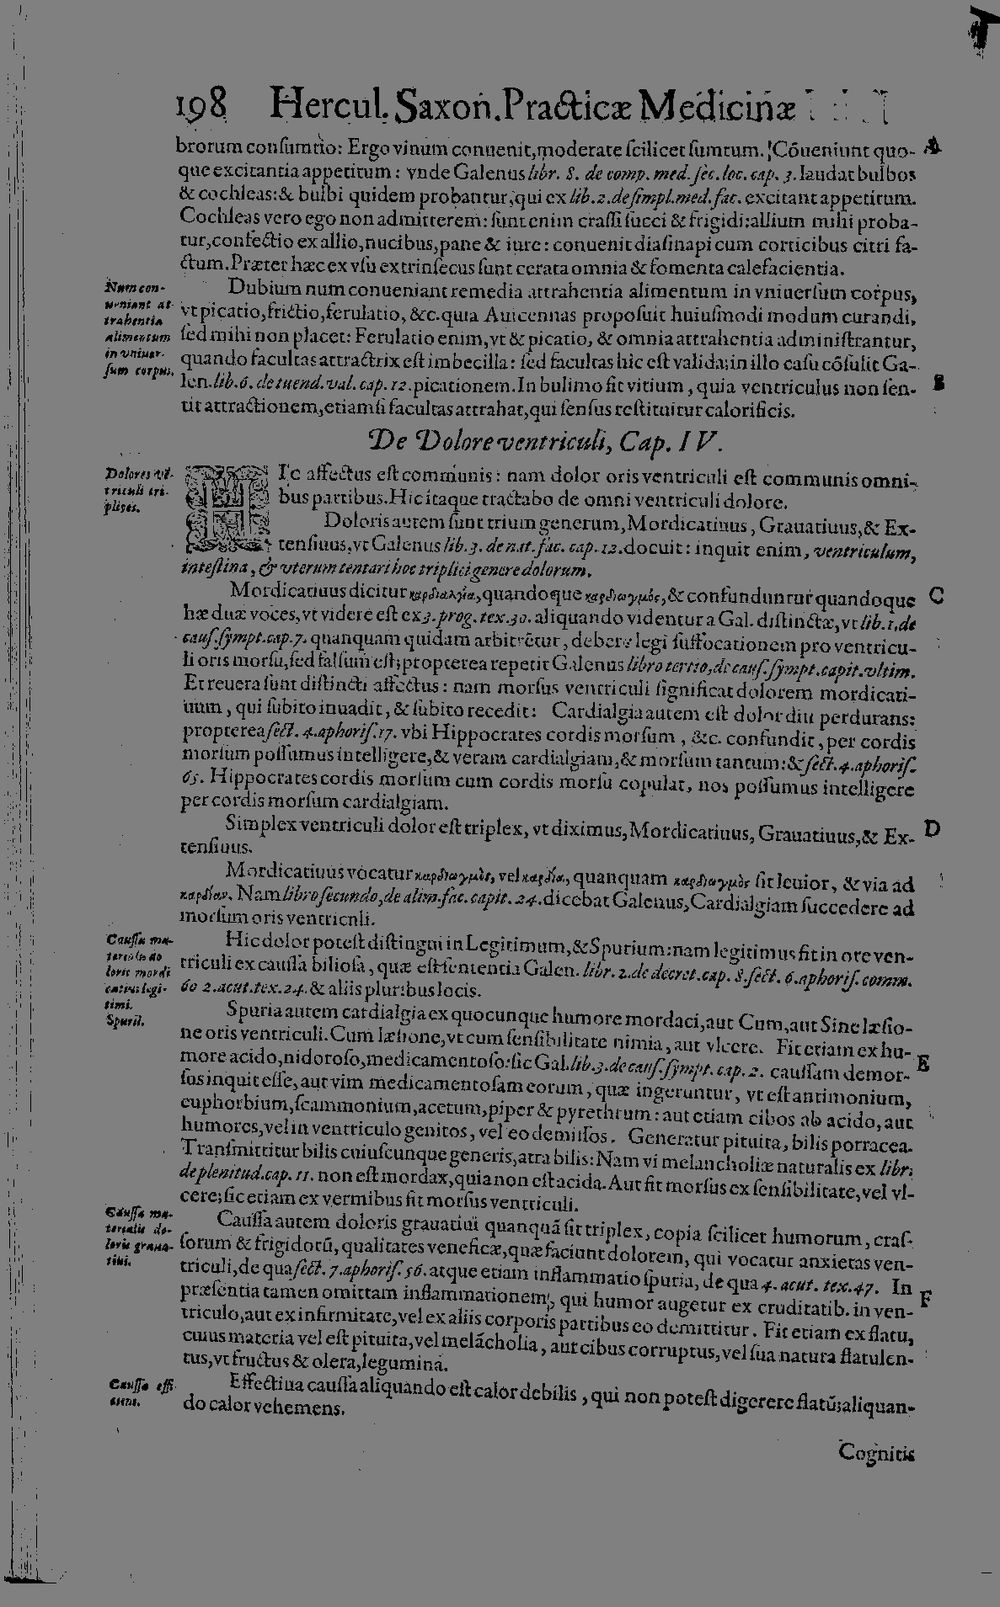 198 Hercul. Saxon. Practicæ Medicinæ
brorum conſumtio: Ergo vinum conuenit, moderate ſcilicet ſumtum. Cōueniunt quo- A
que excitantia appetitum: vnde Galenus libr. 8. de comp. med. ſec. loc. cap. 3. laudat bulbos
& cochleas: & bulbi quidem probantur, qui ex lib. 2. de ſimpl. med. fac. excitant appetitum.
Cochleas vero ego non admitterem: ſunt enim craſſi ſucci & frigidi: allium mihi proba-
tur, confectio ex allio, nucibus, pane & iure: conuenit diaſinapi cum corticibus citri fa-
ctum. Præter hæc ex vſu extrinſecus ſunt cerata omnia & fomenta calefacientia.
Num con-
ueniant at-
trahentia
alimentum
in vniuer-
ſum corpus.
Dubium num conueniant remedia attrahentia alimentum in vniuerſum corpus,
vt picatio, frictio, ferulatio, &c. quia Auicennas propoſuit huiuſmodi modum curandi,
ſed mihi non placet: Ferulatio enim, vt & picatio, & omnia attrahentia adminiſtrantur,
quando facultas attractrix eſt imbecilla: ſed facultas hic eſt valida: in illo caſu cōſulit Ga-
len. lib. 6. de tuend. val. cap. 12. picationem. In bulimo fit vitium, quia ventriculus non ſen- B
tit attractionem, etiamſi facultas attrahat, qui ſenſus reſtituitur calorificis.
De Dolore ventriculi, Cap. IV.
Dolores vē-
triculi tri-
plices.
HIc affectus eſt communis: nam dolor oris ventriculi eſt communis omni-
bus partibus. Hic itaque tractabo de omni ventriculi dolore.
Doloris autem ſunt trium generum, Mordicatiuus, Grauatiuus, & Ex-
tenſiuus, vt Galenus lib. 3. de nat. fac. cap. 12. docuit: inquit enim, ventriculum,
inteſtina, & vterum tentari hoc triplici genere dolorum.
Mordicatiuus dicitur καρδιαλγία, quandoque καρδιωγμὸς, & confunduntur quandoque C
hæ duæ voces, vt videre eſt ex 3. prog. tex. 30. aliquando videntur a Gal. diſtinctæ, vt lib. 1. de
cauſ. ſympt. cap. 7. quanquam quidam arbitrētur, debere legi ſuffocationem pro ventricu-
li oris morſu, ſed falſum eſt; propterea repetit Galenus libro tertio, de cauſ. ſympt. capit. vltim.
Et reuera ſunt diſtincti affectus: nam morſus ventriculi ſignificat dolorem mordicati-
uum, qui ſubito inuadit, & ſubito recedit: Cardialgia autem eſt dolor diu perdurans:
propterea ſect. 4. aphoriſ. 17. vbi Hippocrates cordis morſum, &c. confundit, per cordis
morſum poſſumus intelligere, & veram cardialgiam, & morſum tantum: & ſect. 4. aphoriſ.
65. Hippocrates cordis morſum cum cordis morſu copulat, nos poſſumus intelligere
per cordis morſum cardialgiam.
Simplex ventriculi dolor eſt triplex, vt diximus, Mordicatiuus, Grauatiuus, & Ex- D
tenſiuus.
Mordicatiuus vocatur καρδιωγμὸς, vel καρδία, quanquam καρδιωγμὸς ſit leuior, & via ad
καρδίαν. Nam libro ſecundo, de alim. fac. capit. 24. dicebat Galenus, Cardialgiam ſuccedere ad
morſum oris ventriculi.
Cauſſa ma-
terialis do
loris mordi
catiui legi-
timi.
Spurii.
Hic dolor poteſt diſtingui in Legitimum, & Spurium: nam legitimus fit in ore ven-
triculi ex cauſſa bilioſa, quæ eſt ſententia Galen. libr. 2. de decret. cap. 8. ſect. 6. aphoriſ. comm.
60 2. acut. tex. 24. & aliis pluribus locis.
Spuria autem cardialgia ex quocunque humore mordaci, aut Cum, aut Sine læſio-
ne oris ventriculi. Cum læſione, vt cum ſenſibilitate nimia, aut vlcere. Fit etiam ex hu-
more acido, nidoroſo, medicamentoſo: ſic Gal. lib. 3. de cauſ. ſympt. cap. 2. cauſſam demor- E
ſus inquit eſſe, aut vim medicamentoſam eorum, quæ ingeruntur, vt eſt antimonium,
euphorbium, ſcammonium, acetum, piper & pyrethrum: aut etiam cibos ab acido, aut
humores, vel in ventriculo genitos, vel eo demiſſos. Generatur pituita, bilis porracea.
Tranſmittitur bilis cuiuſcunque generis, atra bilis: Nam vi melancholiæ naturalis ex libr.
de plenitud. cap. 11. non eſt mordax, quia non eſt acida. Aut fit morſus ex ſenſibilitate, vel vl-
cere; ſic etiam ex vermibus fit morſus ventriculi.
Cauſſa ma-
terialis do-
loris graua-
tiui.
Cauſſa autem doloris grauatiui quanquā ſit triplex, copia ſcilicet humorum, craſ-
ſorum & frigidorū, qualitates veneficæ, quæ faciunt dolorem, qui vocatur anxietas ven-
triculi, de qua ſect. 7. aphoriſ. 56. atque etiam inflammatio ſpuria, de qua 4. acut. tex. 47. In
præſentia tamen omittam inflammationem, qui humor augetur ex cruditatib. in ven- F
triculo, aut ex infirmitate, vel ex aliis corporis partibus eo demittitur. Fit etiam ex flatu,
cuius materia vel eſt pituita, vel melācholia, aut cibus corruptus, vel ſua natura flatulen-
tus, vt fructus & olera, legumina.
Cauſſa effi
ciens.
Effectiua cauſſa aliquando eſt calor debilis, qui non poteſt digerere flatū; aliquan-
do calor vehemens.
Cognitis